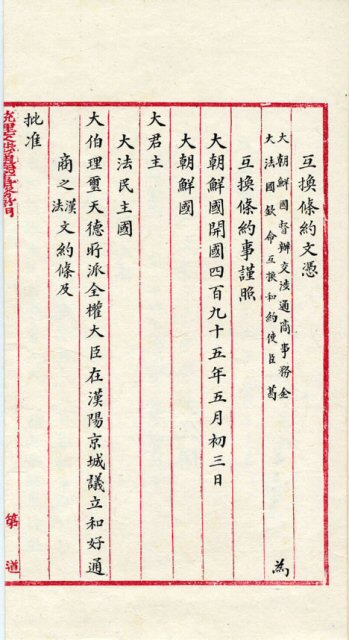 互換條約文憑
大朝鮮國督辦交涉通商事務金
大法國欽命互換和約使臣葛
為
互換條約事謹照
大朝鮮國開國四百九十五年五月初三日
大朝鮮國
大君主
大法民主國
大伯理璽天德所派全權大臣在漢陽京城議立和好通
商之漢法文約條及
批准
第 道